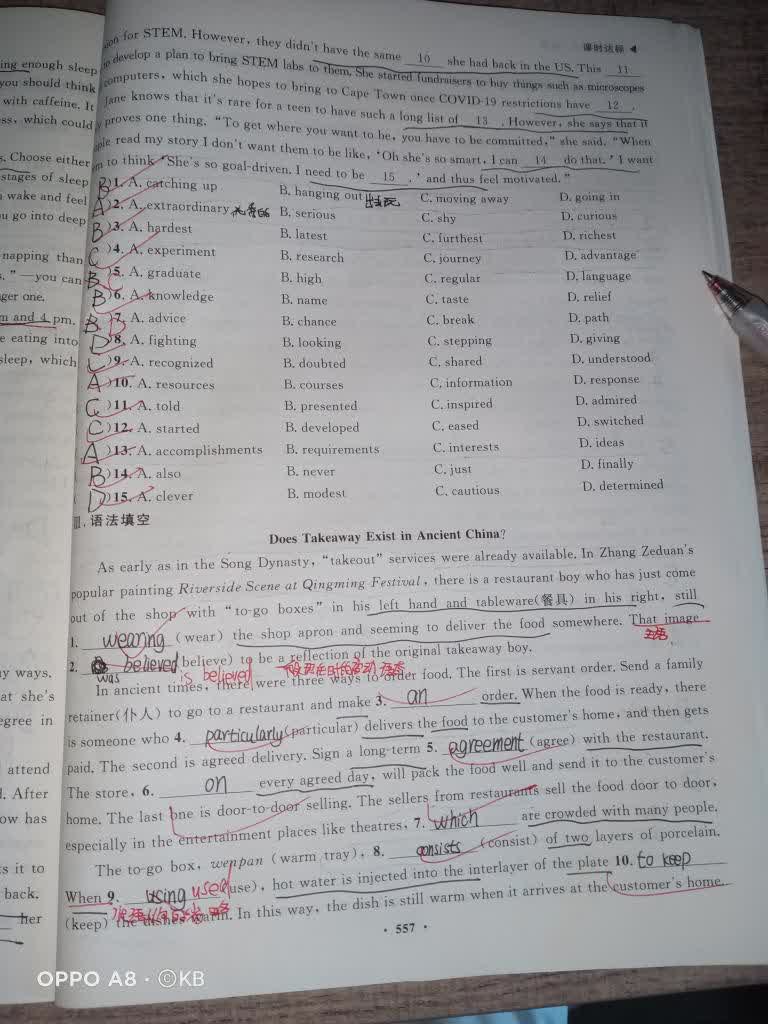 课时达标
ion for STEM. However, they didn't have the same 10 she had back in the US. This 11
to develop a plan to bring STEM labs to them. She started fundraisers to buy things such as microscopes
computers, which she hopes to bring to Cape Town once COVID-19 restrictions have 12 .
Jane knows that it's rare for a teen to have such a long list of 13 . However, she says that it
proves one thing. "To get where you want to be, you have to be committed," she said. "When
ple read my story I don't want them to be like, 'Oh she's so smart, I can 14 do that.' I want
m to think 'She's so goal-driven. I need to be 15 ,' and thus feel motivated."
B )1. A. catching up B. hanging out C. moving away D. going in
A )2. A. extraordinary B. serious C. shy D. curious
B )3. A. hardest B. latest C. furthest D. richest
C )4. A. experiment B. research C. journey D. advantage
B 5. A. graduate B. high C. regular D. language
B )6. A. knowledge B. name C. taste D. relief
B 7. A. advice B. chance C. break D. path
D )8. A. fighting B. looking C. stepping D. giving
C )9. A. recognized B. doubted C. shared D. understood
A )10. A. resources B. courses C. information D. response
C )11. A. told B. presented C. inspired D. admired
C )12. A. started B. developed C. eased D. switched
A )13. A. accomplishments B. requirements C. interests D. ideas
B )14. A. also B. never C. just D. finally
D )15. A. clever B. modest C. cautious D. determined
Ⅲ. 语法填空
Does Takeaway Exist in Ancient China?
As early as in the Song Dynasty, "takeout" services were already available. In Zhang Zeduan's
popular painting Riverside Scene at Qingming Festival, there is a restaurant boy who has just come
out of the shop with "to-go boxes" in his left hand and tableware(餐具) in his right, still
1. wearing (wear) the shop apron and seeming to deliver the food somewhere. That image
主语
2. was believed believe) to be a reflection of the original takeaway boy.
is believed
In ancient times, there were three ways to order food. The first is servant order. Send a family
retainer(仆人) to go to a restaurant and make 3. an order. When the food is ready, there
is someone who 4. particularly (particular) delivers the food to the customer's home, and then gets
paid. The second is agreed delivery. Sign a long-term 5. agreement (agree) with the restaurant.
The store, 6. on every agreed day, will pack the food well and send it to the customer's
home. The last one is door-to-door selling. The sellers from restaurants sell the food door to door,
especially in the entertainment places like theatres, 7. which are crowded with many people.
The to-go box, wenpan (warm tray), 8. consists (consist) of two layers of porcelain.
When 9. using used use), hot water is injected into the interlayer of the plate 10. to keep
(keep) the dishes warm. In this way, the dish is still warm when it arrives at the customer's home.
· 557 ·
ing enough sleep
you should think
with caffeine. It
ss, which could
s. Choose either
stages of sleep
wake and feel
u go into deep
napping than
s. "—you can
ger one.
m and 4 pm.
e eating into
sleep, which
ny ways.
at she's
egree in
attend
d. After
ow has
s it to
back.
her
OPPO A8 · ©KB